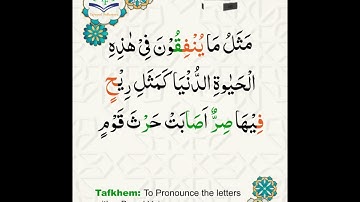 مَثَلُ مَا يُنْفِقُوْنَ فِىْ هٰذِهِ
الْحَيٰوةِ الدُّنْيَا كَمَثَلِ رِيْحٍ
فِيْهَا صِرٌّ اَصَابَتْ حَرْثَ قَوْمٍ
Tafkhem: To Pronounce the letters